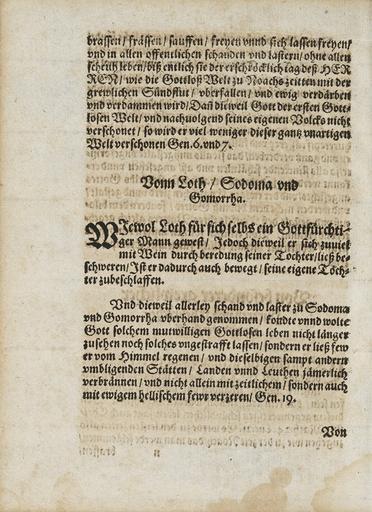 brassen / frässen / sauffen / freyen vnnd sich lassen freyen /
vnd in allen offentlichen schanden vnd lastern / ohne allen
scheuh leben / biß entlich sie der erschröcklich tag deß HER
REN / wie die Gottloß Welt zu Noachs zeitten mit der
grewlichen Sündflut / vberfallen / vnd ewig verdärben
vnd verdammen wird / Daß dieweil Gott der ersten Gott-
losen Welt / vnd nachuolgend seines eigenen Volcks nicht
verschonet / so wird er viel weniger dieser ganz vnartigen
Welt verschonen Gen. 6. vnd 7.
Vonn Loth / Sodoma vnd
Gomorrha.
WIewol Loth für sich selbs ein Gottfürchti-
ger Mann gewest / Jedoch dieweil er sich zuuiel
mit Wein durch beredung seiner Töchter / ließ be-
schweren / Ist er dadurch auch bewegt / seine eigene Töch-
ter zubeschlaffen.
Vnd dieweil allerley schand vnd laster zu Sodoma
vnd Gomorrha vberhand genommen / kondte vnnd wolte
Gott solchem mutwilligen Gottlosen leben nicht länger
zusehen noch solches vngestrafft lassen / sondern er ließ fewr
er vom Himmel regenen / vnd dieselbigen sampt andern
vmbligenden Stätten / Landen vnnd Leuthen jämerlich
verbrännen / vnd nicht allein mit zeitlichem / sondern auch
mit ewigem hellischem fewr verzeren / Gen. 19.
Von